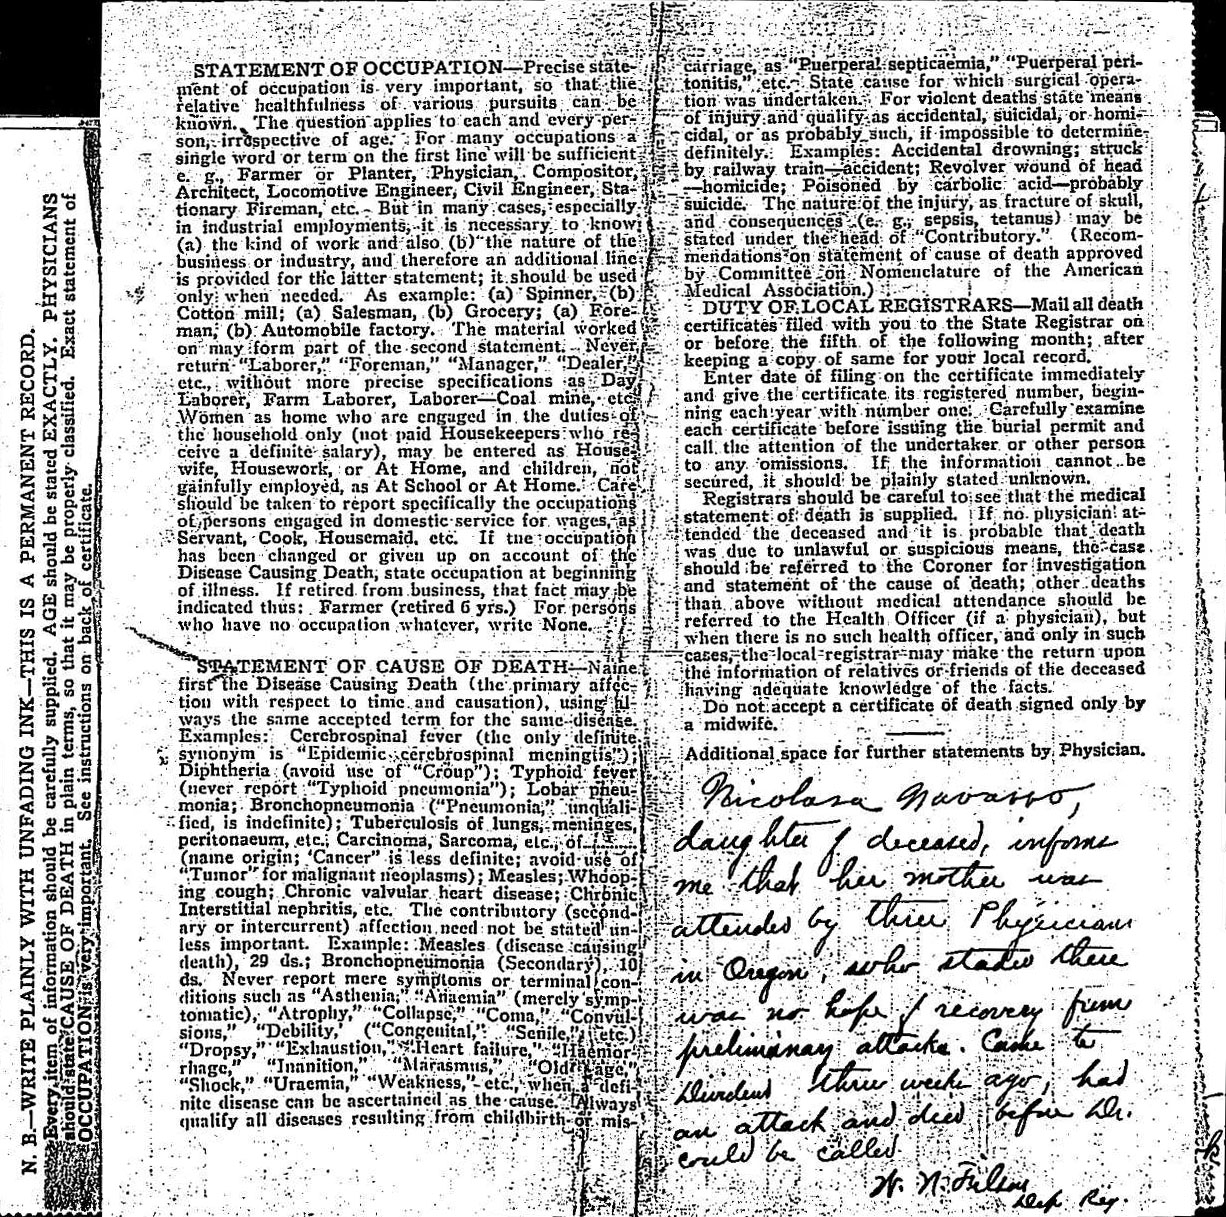 N. B.—WRITE PLAINLY WITH UNFADING INK—THIS IS A PERMANENT RECORD.
Every item of information should be carefully supplied. AGE should be stated EXACTLY. PHYSICIANS
should state CAUSE OF DEATH in plain terms, so that it may be properly classified. Exact statement of
OCCUPATION is very important. See instructions on back of certificate.
STATEMENT OF OCCUPATION—Precise state-
ment of occupation is very important, so that the
relative healthfulness of various pursuits can be
known. The question applies to each and every per-
son, irrespective of age. For many occupations a
single word or term on the first line will be sufficient
e. g., Farmer or Planter, Physician, Compositor,
Architect, Locomotive Engineer, Civil Engineer, Sta-
tionary Fireman, etc. But in many cases, especially
in industrial employments, it is necessary to know
(a) the kind of work and also (b) the nature of the
business or industry, and therefore an additional line
is provided for the latter statement; it should be used
only when needed. As example: (a) Spinner, (b)
Cotton mill; (a) Salesman, (b) Grocery; (a) Fore-
man, (b) Automobile factory. The material worked
on may form part of the second statement. Never
return "Laborer," "Foreman," "Manager," "Dealer,"
etc., without more precise specifications as Day
Laborer, Farm Laborer, Laborer—Coal mine, etc.
Women as home who are engaged in the duties of
the household only (not paid Housekeepers who re-
ceive a definite salary), may be entered as House-
wife, Housework, or At Home, and children, not
gainfully employed, as At School or At Home. Care
should be taken to report specifically the occupations
of persons engaged in domestic service for wages, as
Servant, Cook, Housemaid, etc. If the occupation
has been changed or given up on account of the
Disease Causing Death, state occupation at beginning
of illness. If retired from business, that fact may be
indicated thus: Farmer (retired 6 yrs.) For persons
who have no occupation whatever, write None.
STATEMENT OF CAUSE OF DEATH—Name
first the Disease Causing Death (the primary affec-
tion with respect to time and causation), using al-
ways the same accepted term for the same disease.
Examples: Cerebrospinal fever (the only definite
synonym is "Epidemic cerebrospinal meningtis");
Diphtheria (avoid use of "Croup"); Typhoid fever
(never report "Typhoid pneumonia"); Lobar pneu-
monia; Bronchopneumonia ("Pneumonia," unquali-
fied, is indefinite); Tuberculosis of lungs, meninges,
peritonaeum, etc., Carcinoma, Sarcoma, etc., of ........
(name origin; 'Cancer" is less definite; avoid use of
"Tumor" for malignant neoplasms); Measles; Whoop-
ing cough; Chronic valvular heart disease; Chronic
Interstitial nephritis, etc. The contributory (second-
ary or intercurrent) affection need not be stated un-
less important. Example: Measles (disease causing
death), 29 ds.; Bronchopneumonia (Secondary), 10
ds. Never report mere symptoms or terminal con-
ditions such as "Asthenia," "Anaemia" (merely symp-
tomatic), "Atrophy," "Collapse," "Coma," "Convul-
sions," "Debility,' ("Congenital," "Senile," etc.)
"Dropsy," "Exhaustion," "Heart failure," "Haemor-
rhage," "Inanition," "Marasmus," "Old age,"
"Shock," "Uraemia," "Weakness," etc., when a defi-
nite disease can be ascertained as the cause. Always
qualify all diseases resulting from childbirth or mis-
carriage, as "Puerperal septicaemia," "Puerperal peri-
tonitis," etc. State cause for which surgical opera-
tion was undertaken. For violent deaths state means
of injury and qualify as accidental, suicidal, or homi-
cidal, or as probably such, if impossible to determine
definitely. Examples: Accidental drowning; struck
by railway train—accident; Revolver wound of head
—homicide; Poisoned by carbolic acid—probably
suicide. The nature of the injury, as fracture of skull,
and consequences (e. g., sepsis, tetanus) may be
stated under the head of "Contributory." (Recom-
mendations on statement of cause of death approved
by Committee on Nomenclature of the American
Medical Association.)
DUTY OF LOCAL REGISTRARS—Mail all death
certificates filed with you to the State Registrar on
or before the fifth of the following month; after
keeping a copy of same for your local record.
Enter date of filing on the certificate immediately
and give the certificate its registered number, begin-
ning each year with number one. Carefully examine
each certificate before issuing the burial permit and
call the attention of the undertaker or other person
to any omissions. If the information cannot be
secured, it should be plainly stated unknown.
Registrars should be careful to see that the medical
statement of death is supplied. If no physician at-
tended the deceased and it is probable that death
was due to unlawful or suspicious means, the case
should be referred to the Coroner for investigation
and statement of the cause of death; other deaths
than above without medical attendance should be
referred to the Health Officer (if a physician), but
when there is no such health officer, and only in such
cases, the local registrar may make the return upon
the information of relatives or friends of the deceased
having adequate knowledge of the facts.
Do not accept a certificate of death signed only by
a midwife.
Additional space for further statements by Physician.
Nicolasa Navarro,
daughter of deceased, informs
me that her mother was
attended by three Physicians
in Oregon, who stated there
was no hope of recovery from
preliminary attacks. Came to
Dividend three weeks ago, had
an attack and died before Dr.
could be called
W. N. Dep Reg.